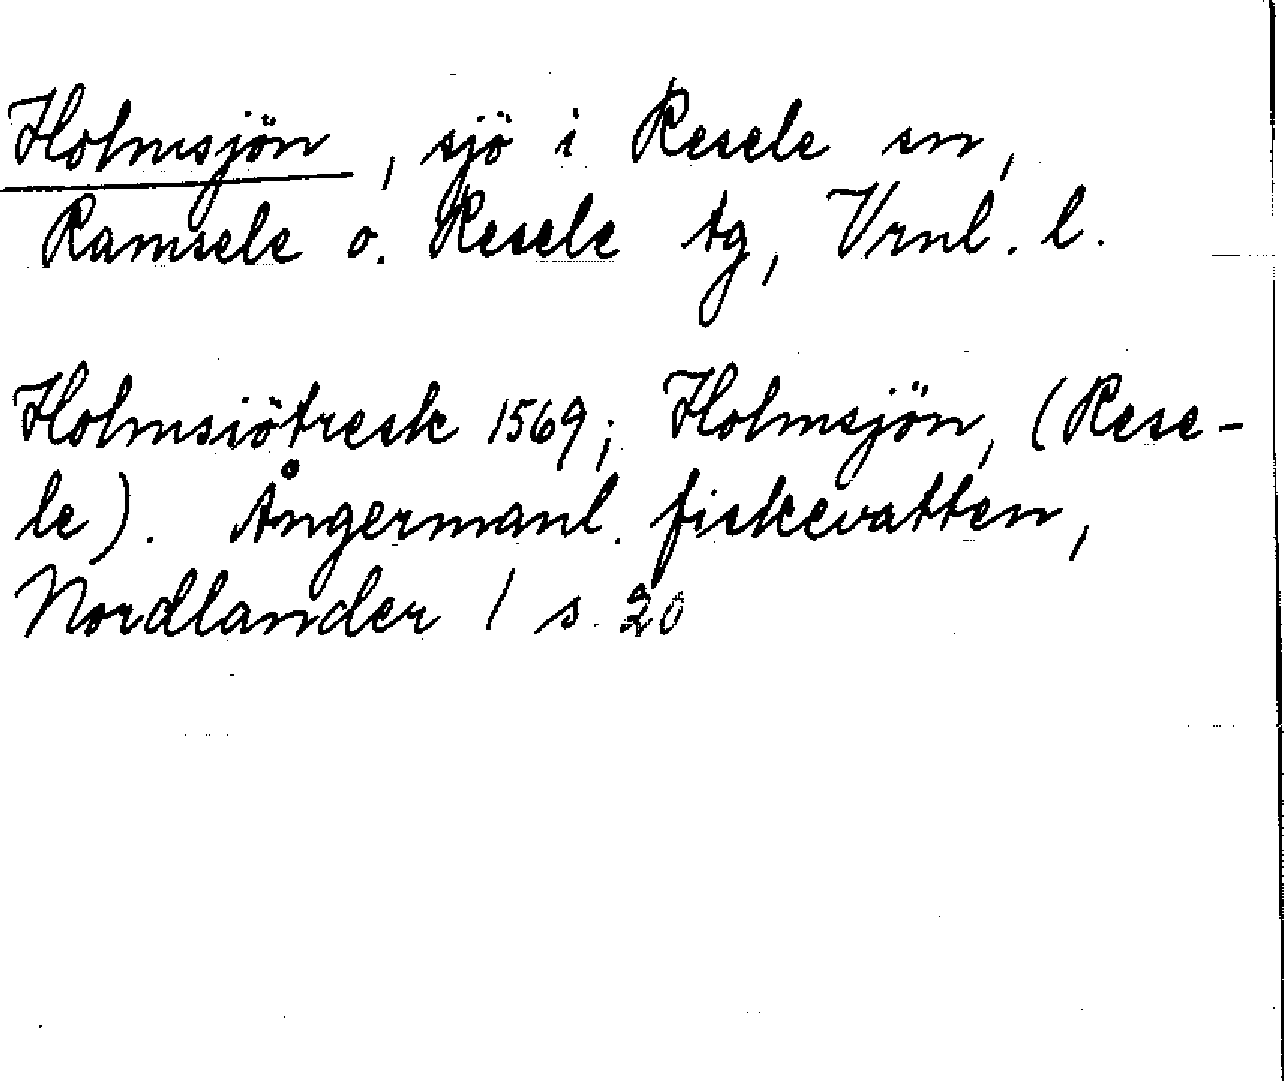 Holmsjön, sjö i Resele sn,
Ramsele o. Resele tg, Vrnl. l.
Holmsiötresk 1569; Holmsjön, (Rese-
le). Ångermanl. fiskevatten,
Nordlander 1 s. 20